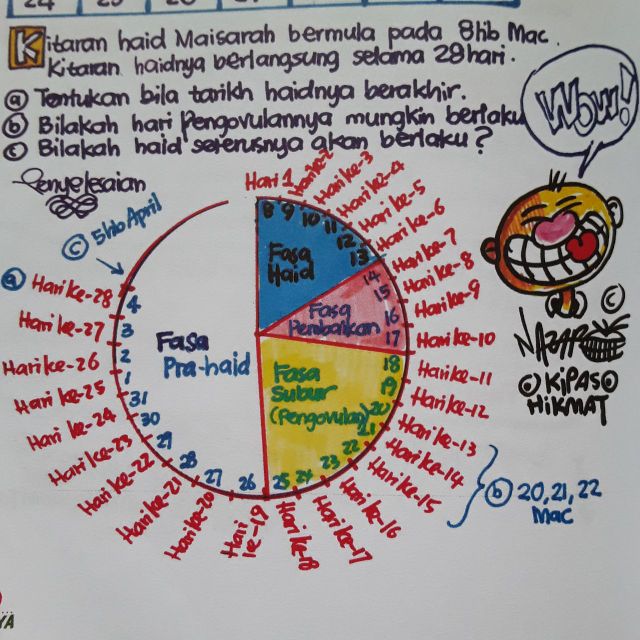 24 25 26 27
Kitaran haid Maisarah bermula pada 8hb Mac.
Kitaran haidnya berlangsung selama 28 hari.
ⓐ Tentukan bila tarikh haidnya berakhir.
ⓑ Bilakah hari Pengovulannya mungkin berlaku
ⓒ Bilakah haid seterusnya akan berlaku?
Wow!
Penyelesaian
ⓒ 5hb April
Hari 1
Hari ke-2
Hari ke-3
Hari ke-4
Hari ke-5
Hari ke-6
Hari ke-7
Hari ke-8
Hari ke-9
Hari ke-10
Hari ke-11
Hari ke-12
Hari ke-13
Hari ke-14
Hari ke-15
Hari ke-16
Hari ke-17
Hari ke-18
Hari ke-19
Hari ke-20
Hari ke-21
Hari ke-22
Hari ke-23
Hari ke-24
Hari ke-25
Hari ke-26
Hari ke-27
ⓐ Hari ke-28
8 9 10 11 12 13
Fasa
Haid
14 15 16 17
Fasa
Pembaikan
18 19 20 21 22 23 24 25
Fasa
Subur
(Pengovulan)
26 27 28 29 30 31 1 2 3 4
Fasa
Pra-haid
ⓑ 20, 21, 22
Mac
©
© KiPAS©
HiKMAT
YA